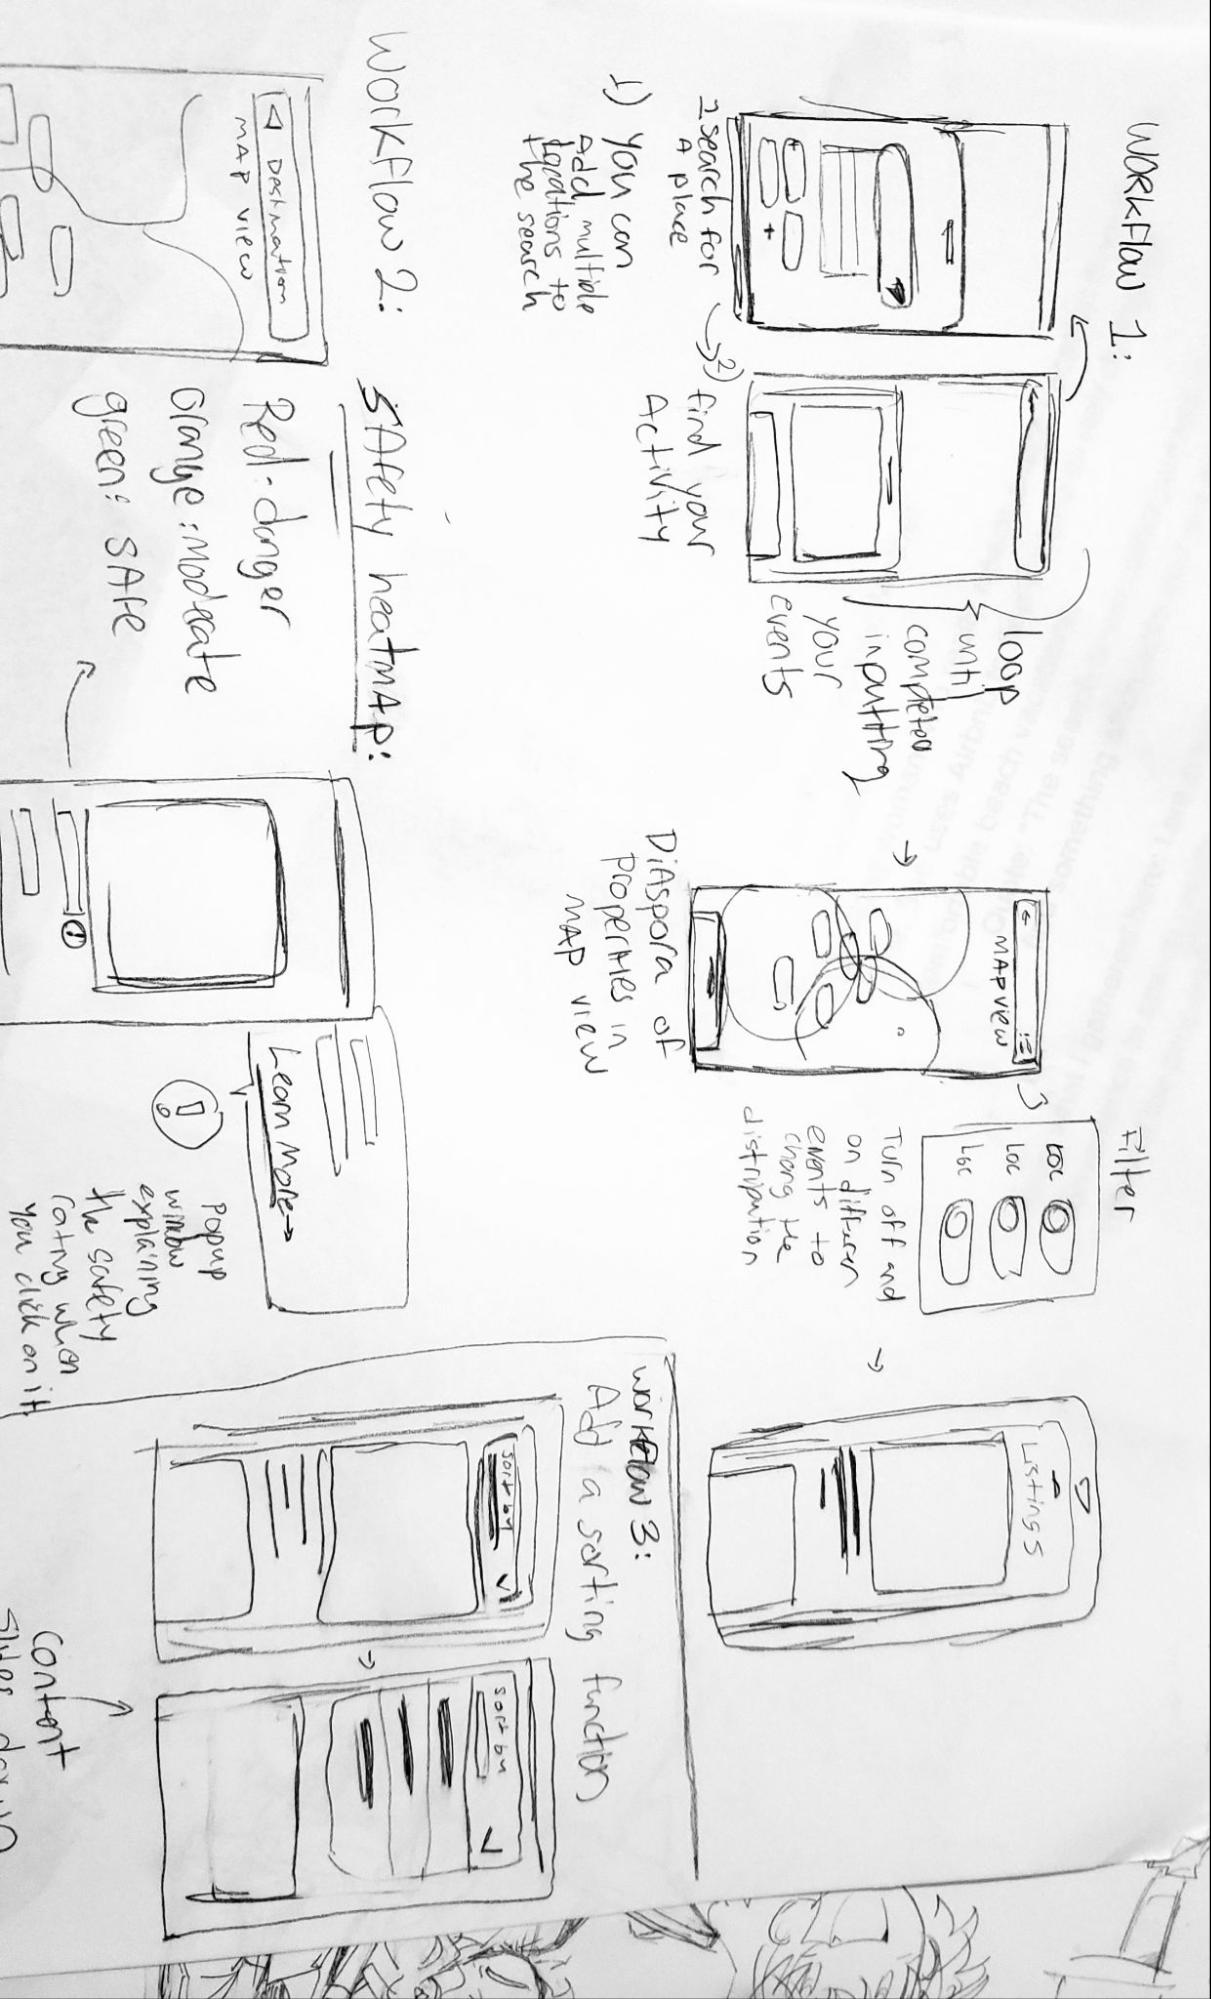 WORKFlow 1:
2. search for
A place
1) you can
Add multiple
locations to
the search
2) find your
Activity
loop
until
completed
inputting
your
events
MAP VIEW
DiAspora of
properties in
MAP view
Filter
LOC
LOC
LOC
Turn off and
on differen
events to
chang the
distribution
Listings
Workflow 2:
SAfety heatmAp:
Destination
MAP VIEW
Red: danger
Orange: Moderate
green: SAfe
Learn More →
Popup
window
explaining
the safety
rating when
you click on it.
workflow 3:
Add a sorting function
sort by
sort by
Content